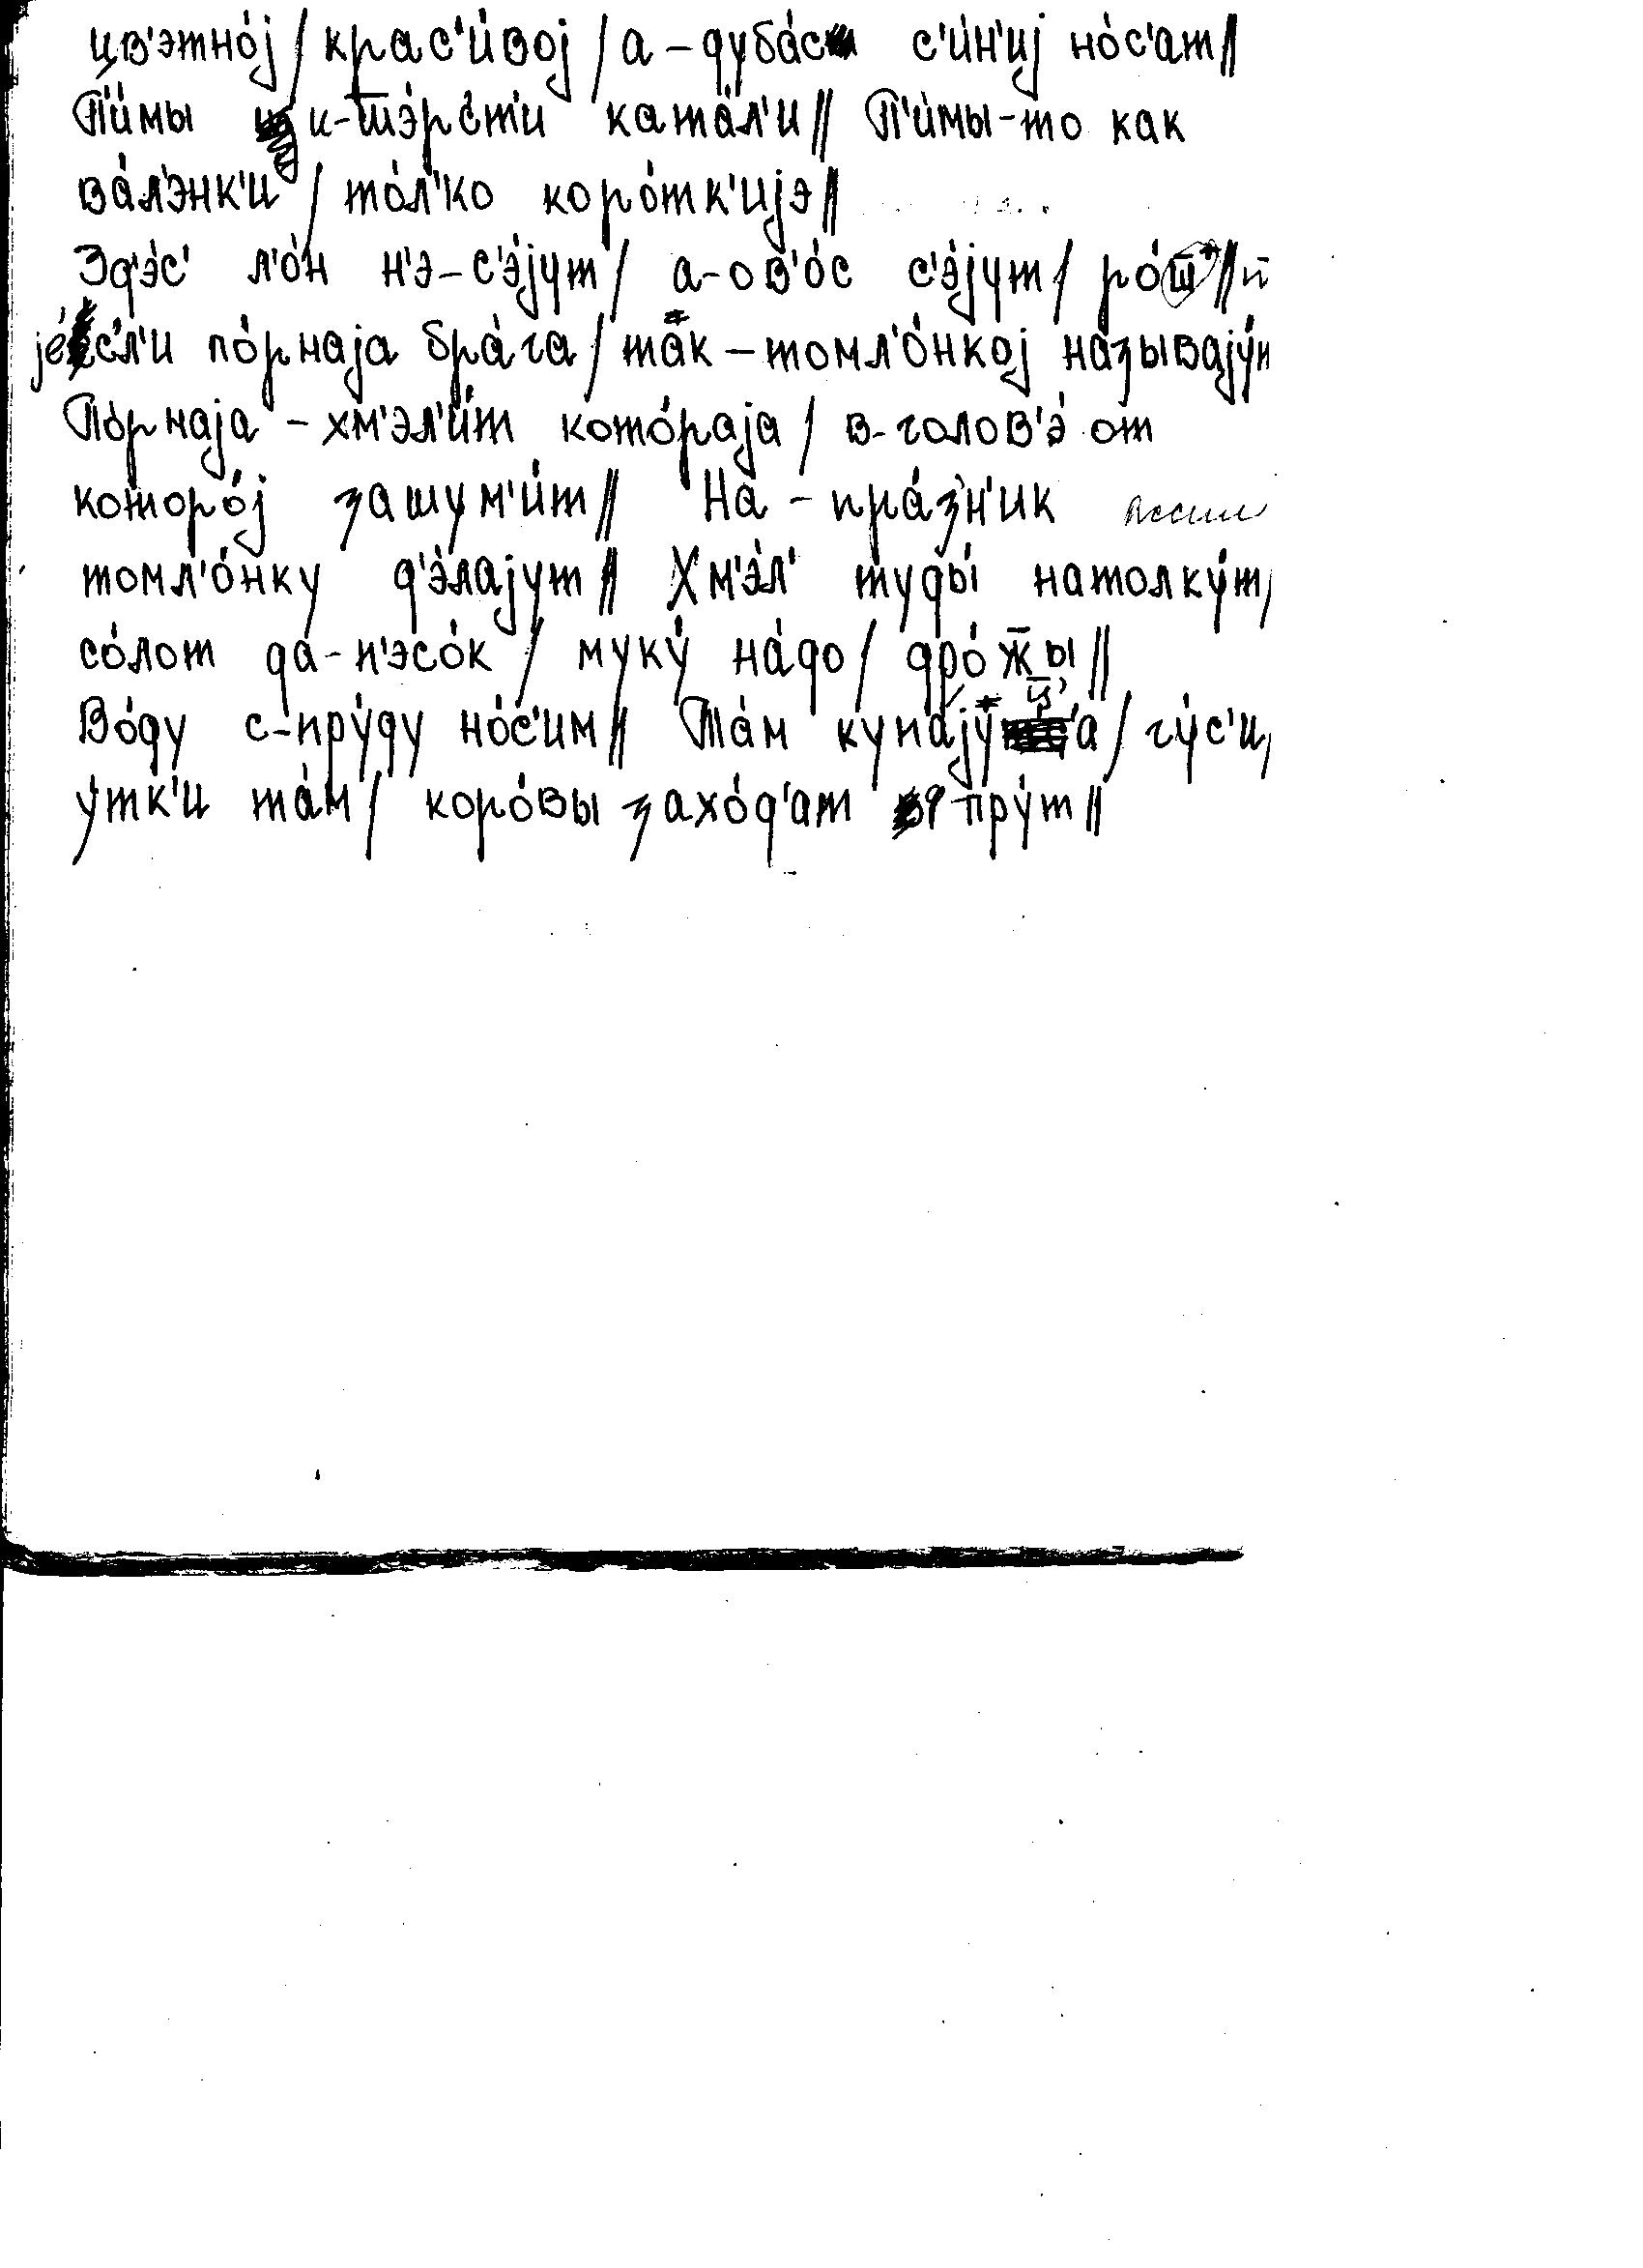 цв'этно́j / крас'и́воj / а – дуба́с с'и́н'иj но́с'ат //
П'и́мы и-ш̅э́рс'т'и ката́л'и // П'и́мы-то как
ва́л'энк'и / то́л'ко коро́тк'иjэ //
Зд'э́с' л'о́н н'э – с'э́jут / а-ов'о́с с'э́jут / ро́ш̅ //
jе́сл'и по́рнаjа бра́га / та́к – томл'о́нкоj называjу́
По́рнаjа – хм'эл'и́т кото́раjа / в-голов'э́ от
которо́j зашум'и́т // На – пра́з'н'ик
томл'о́нку д'э́лаjут // Хм'э́л' туды́ натолку́т /
со́лот да-п'эсо́к / муку́ на́до / дро́ж̅ы //
Во́ду с-пру́ду но́с'им // Та́м купа́jуц̅'а / гу́с'и /
у́тк'и та́м / коро́вы захо́д'ат ф-пру́т //